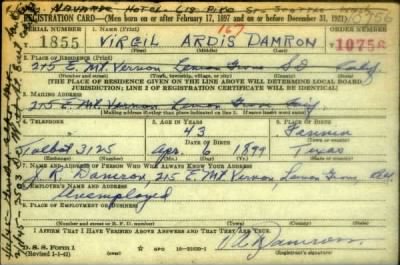 NAVARRE HOTEL
REGISTRATION CARD—(Men born on or after February 17, 1897 and on or before December 31, 1921)
SERIAL NUMBER 1. NAME (Print) 167 ORDER NUMBER
1855 VIRGIL ARDIS DAMRON 10756
2. PLACE OF RESIDENCE (Print)
215 E. Mt. Vernon Lemon Grove S.D. Calif
(Number and street) (Town, township, village, or city) (County) (State)
[THE PLACE OF RESIDENCE GIVEN ON THE LINE ABOVE WILL DETERMINE LOCAL BOARD
JURISDICTION; LINE 2 OF REGISTRATION CERTIFICATE WILL BE IDENTICAL]
3. MAILING ADDRESS
215 E. Mt. Vernon Lemon Grove Calif.
[Mailing address if other than place indicated on line 2. If same insert word same]
4. TELEPHONE 5. AGE IN YEARS 6. PLACE OF BIRTH
43 Fannin
DATE OF BIRTH
Talbot 3125 Apr. 6 1899 Texas
(Exchange) (Number) (Mo.) (Day) (Yr.) (State or country)
7. NAME AND ADDRESS OF PERSON WHO WILL ALWAYS KNOW YOUR ADDRESS
J. R. Dameron, 215 E. Mt. Vernon, Lemon Grove Calif
8. EMPLOYER'S NAME AND ADDRESS
Unemployed
9. PLACE OF EMPLOYMENT OR BUSINESS
(Number and street or R. F. D. number) (Town) (County) (State)
I AFFIRM THAT I HAVE VERIFIED ABOVE ANSWERS AND THAT THEY ARE TRUE.
D. S. S. Form 1
(Revised 1-1-42) GPO 16—21630-1
V. A. Damron